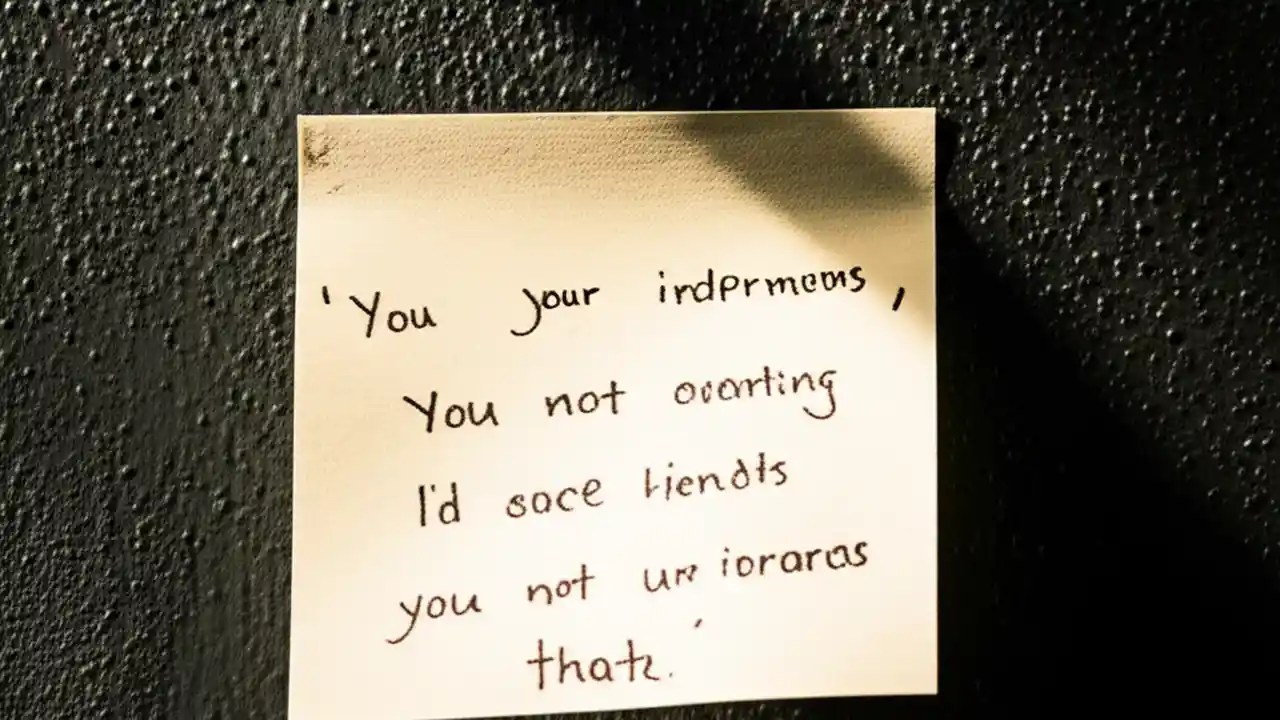 'You your indermeons,
You not ovarting
I'd soce liendts
you not uwr ioraras
thatz.'